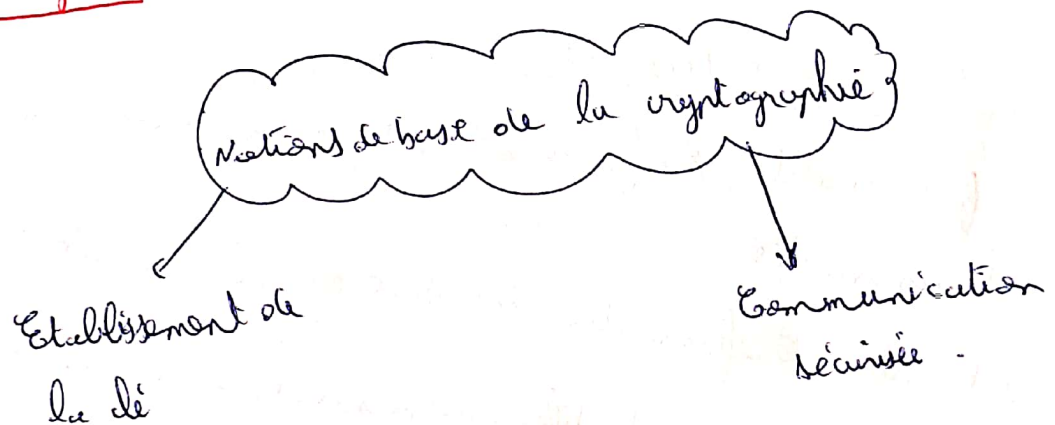 Notions de base de la cryptographie
Etablissement de
la clé
Communication
sécurisée.